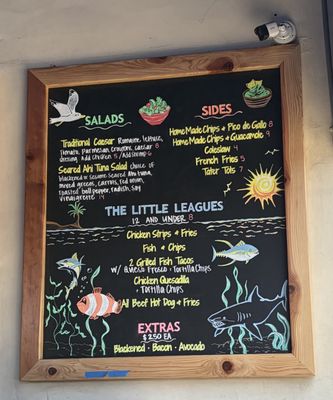 SALADS
Traditional Caesar Romaine, lettuce,
Tomato, Parmesan, Croutons, caesar 8
dressing Add Chicken 5 / Add Shrimp 6
Seared Ahi Tuna Salad choice of
blackened or Sesame Seared Ahi tuna,
mixed greens, carrots, red onion,
roasted bell pepper, radish, Soy
Vinaigrette 14
SIDES
Home Made Chips & Pico de Gallo 8
Home Made Chips & Guacamole 9
Coleslaw 4
French Fries 5
Tater Tots 7
THE LITTLE LEAGUES
12 AND UNDER 8
Chicken Strips & Fries
Fish & Chips
2 Grilled Fish Tacos
w/ Queso Fresco & Tortilla Chips
Chicken Quesadilla
& Tortilla Chips
All Beef Hot Dog & Fries
EXTRAS
$2.50 EA
Blackened • Bacon • Avocado